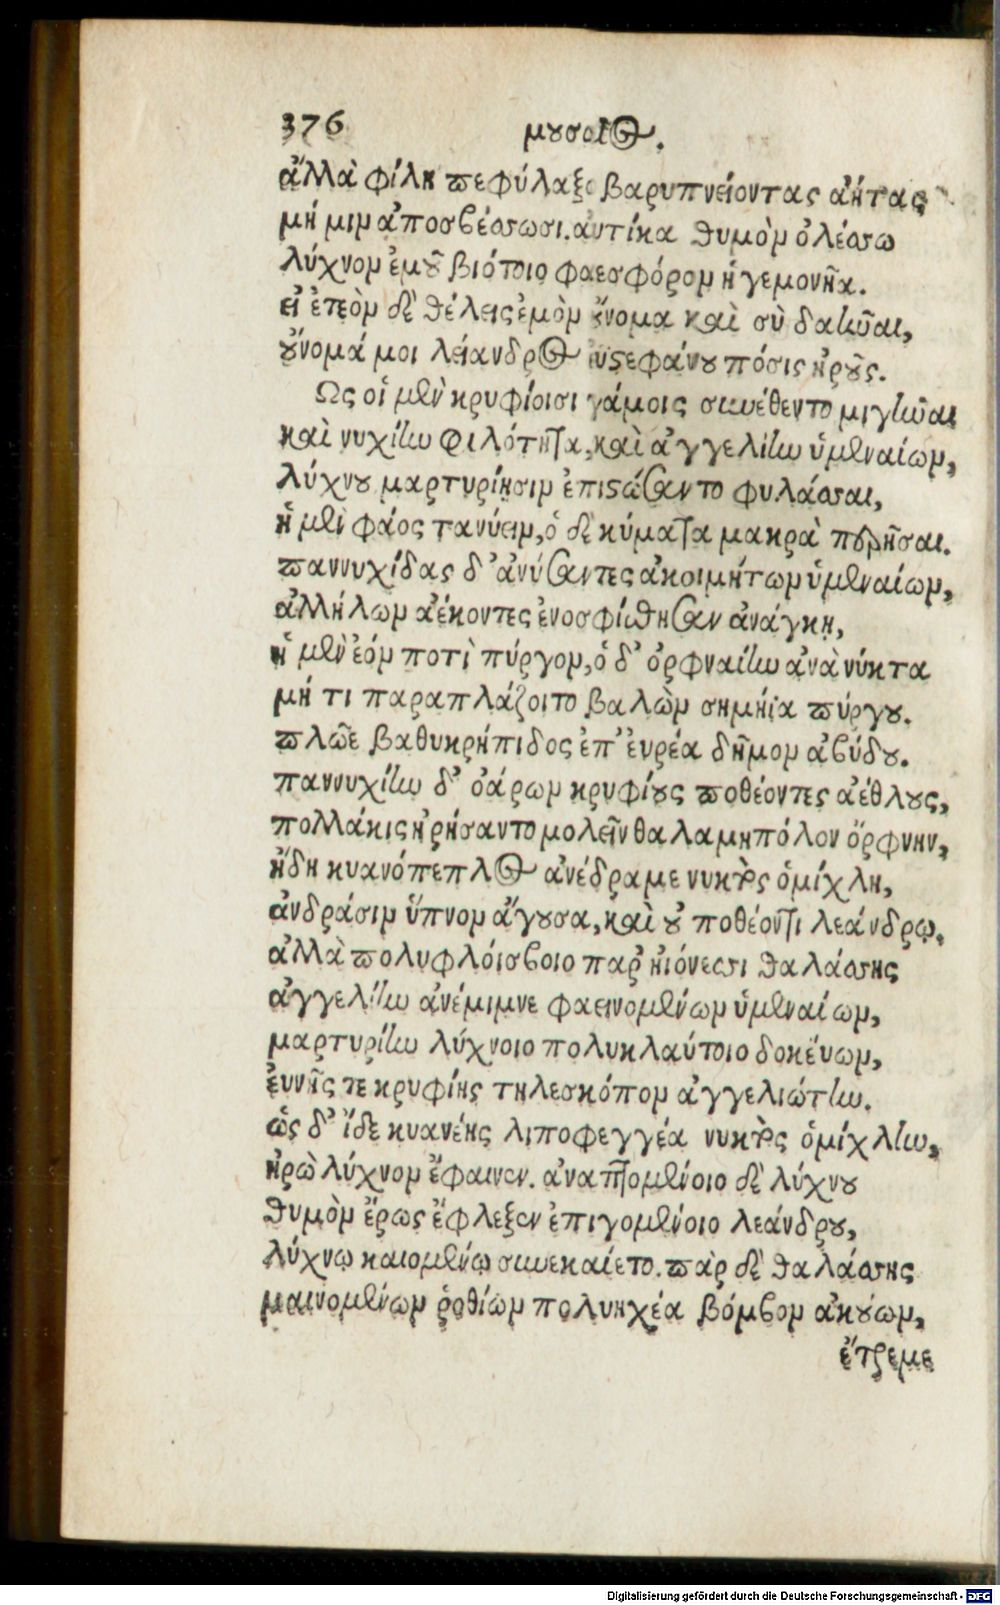 376 μουσαῖος.
ἀλλὰ φίλη πεφύλαξο βαρυπνείοντας ἀήτας
μή μιν ἀποσβέσσωσι. αὐτίκα θυμὸν ὀλέσσω
λύχνον ἐμοῦ βιότοιο φαεσφόρον ἡγεμονῆα.
εἰ ἐτεὸν δὲ θέλεις ἐμὸν οὔνομα καὶ σὺ δαῆναι,
οὔνομά μοι λείανδρος ἐϋστεφάνου πόσις ἡροῦς.
Ως οἱ μὲν κρυφίοισι γάμοις συνέθεντο μιγῆναι
καὶ νυχίην φιλότητα, καὶ ἀγγελίην ὑμεναίων,
λύχνου μαρτυρίησιν ἐπιστώσαντο φυλάσσαι,
ἡ μὲν φάος τανύειν, ὁ δὲ κύματα μακρὰ περῆσαι.
παννυχίδας δ' ἀνύσαντες ἀκοιμήτων ὑμεναίων,
ἀλλήλων ἀέκοντες ἐνοσφίσθησαν ἀνάγκῃ,
ἡ μὲν ἑόν ποτὶ πύργον, ὁ δ' ὀρφναίην ἀνὰ νύκτα
μή τι παραπλάζοιτο βαλὼν σημήϊα πύργου.
πλῶε βαθυκρήπιδος ἐπ' ἐυρέα δῆμον ἀβύδου.
παννυχίων δ' ὀάρων κρυφίους ποθέοντες ἀέθλους,
πολλάκις ἠρήσαντο μολεῖν θαλαμηπόλον ὄρφνην,
ἤδη κυανόπεπλος ἀνέδραμε νυκτὸς ὁμίχλη,
ἀνδράσιν ὕπνον ἄγουσα, καὶ οὐ ποθέοντι λεάνδρῳ.
ἀλλὰ πολυφλοίσβοιο παρ' ἠιόνεσσι θαλάσσης
ἀγγελίην ἀνέμιμνε φαεινομένων ὑμεναίων,
μαρτυρίην λύχνοιο πολυκλαύτοιο δοκεύων,
ἐυνῆς τε κρυφίης τηλεσκόπον ἀγγελιώτην.
ὡς δ' ἴδε κυανέης λιποφεγγέα νυκτὸς ὁμίχλην,
ἡρὼ λύχνον ἔφαινεν. ἀναπτομένοιο δὲ λύχνου
θυμὸν ἔρως ἔφλεξεν ἐπιγομένοιο λεάνδρου,
λύχνῳ καιομένῳ συνεκαίετο. πὰρ δὲ θαλάσσης
μαινομένων ῥοθίων πολυηχέα βόμβον ἀκούων,
ἔτρεμε
Digitalisierung gefördert durch die Deutsche Forschungsgemeinschaft - DFG